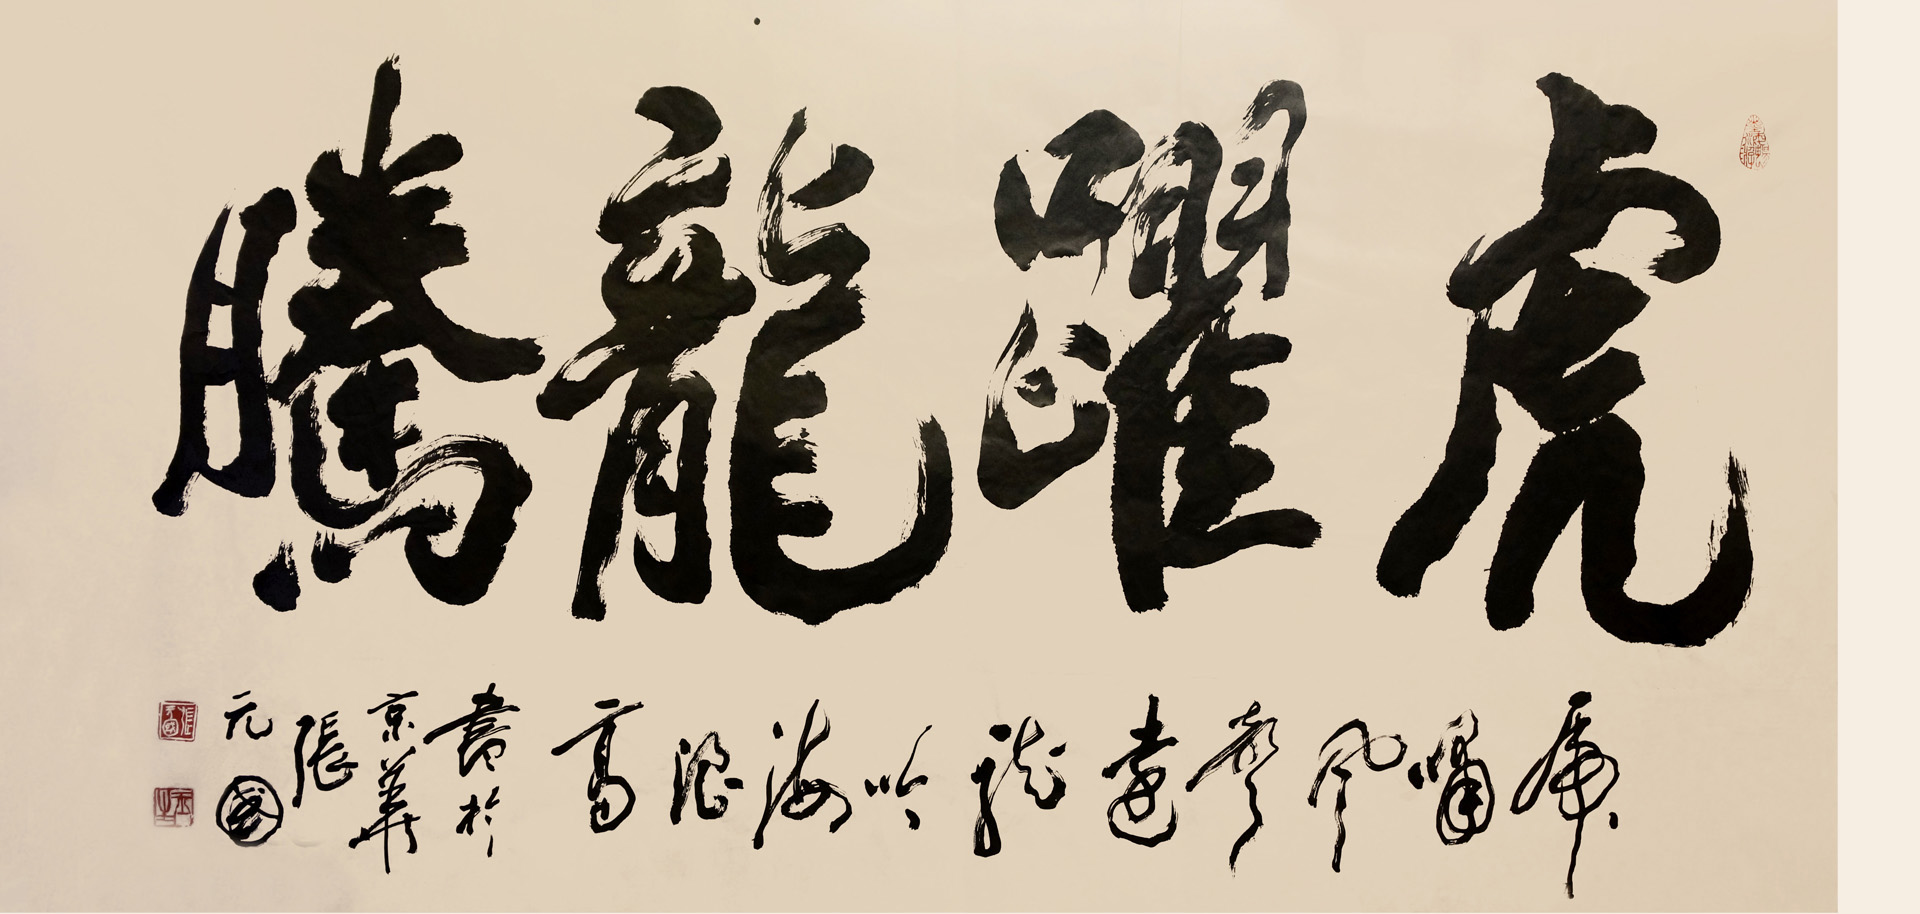 虎躍龍騰
虎嘯風聲遠龍吟海浪高
書於
京華
張
元國